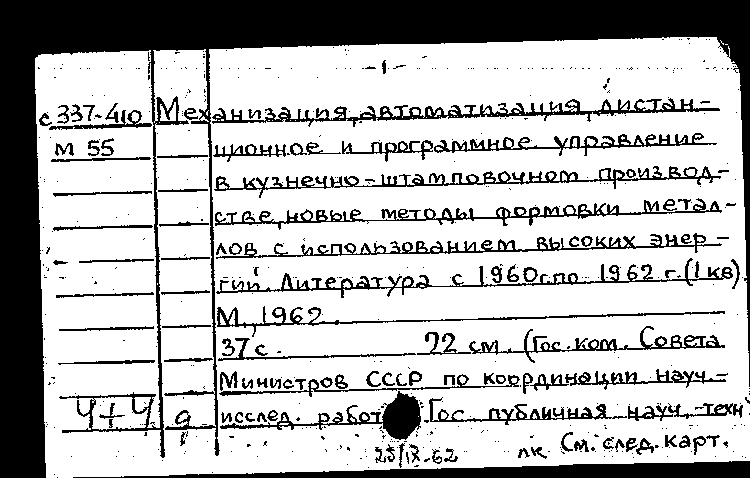 -1-
с337-410 Механизация, автоматизация, дистан-
М 55 ционное и программное управление
в кузнечно-штамповочном производ-
стве, новые методы формовки метал-
лов с использованием высоких энер-
гий. Литература с 1960г.по 1962 г.(1 кв).
М., 1962.
37с. 22 см. (Гос. ком. Совета
Министров СССР по координации науч.-
4+4 д исслед. работ Гос публичная науч.-техн
25/IX-62 лк См. след. карт.